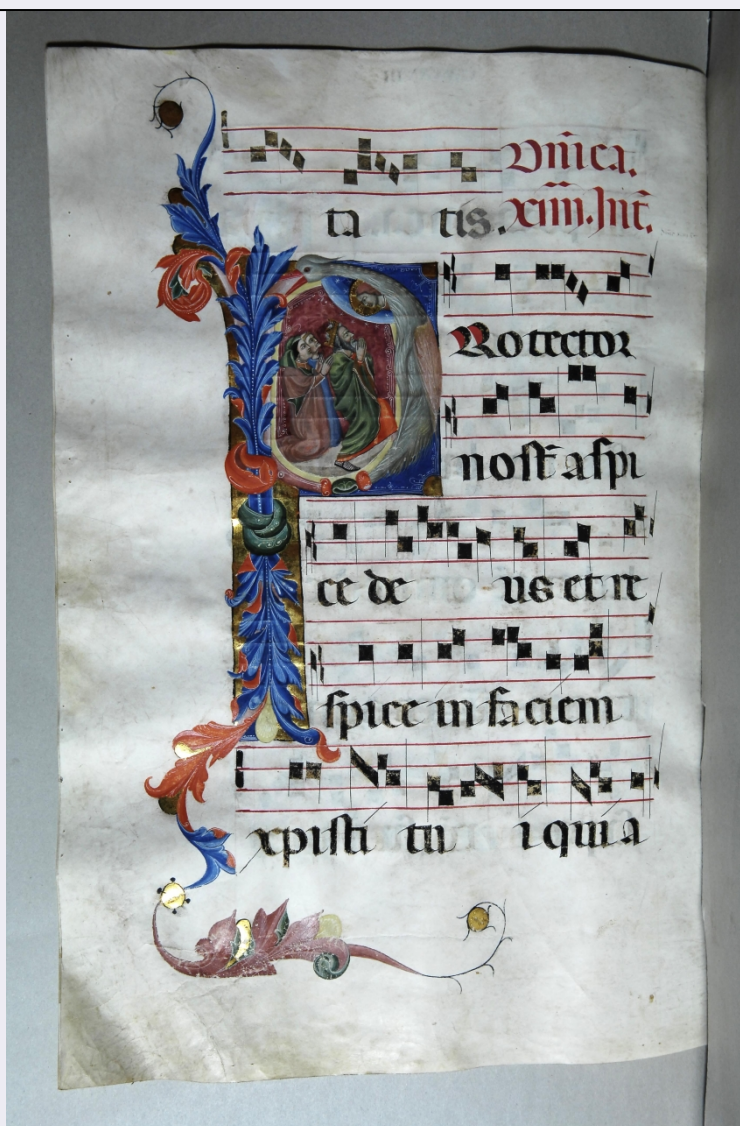 ta tis. Dn̄ica.
xiiii. Int̄.
PRotector
nost̄ aspi
ce de us et re
spice in faciem
xpisti tu i quia